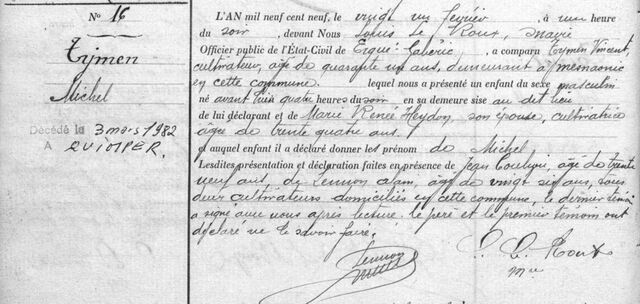 N° 16
Tymen
Michel
Décédé le 3 mars 1982
A QUIMPER.
L'AN mil neuf cent neuf, le vingt un février, à une heure
du soir, devant Nous Louis Le Roux, maire
Officier public de l'État-Civil de Ergué-Gabéric, a comparu Tymen Vincent,
cultivateur, âgé de quarante un ans, demeurant à
en cette commune. lequel nous a présenté un enfant du sexe masculin
né avant hier quatre heures du soir en sa demeure sise au dit lieu
de lui déclarant et de Marie Renée Heydon, son épouse, cultivatrice
âgée de trente quatre ans.
et auquel enfant il a déclaré donner les prénom de Michel.
Lesdites présentation et déclaration faites en présence de Jean âgé de trente
neuf ans, de Lennon Alain, âgé de vingt six ans, tous
deux cultivateurs domiciliés en cette commune, le dernier témoin
a signé avec nous après lecture. le père et le premier témoin ont
déclaré ne le savoir faire.
Lennon
L. Le Roux